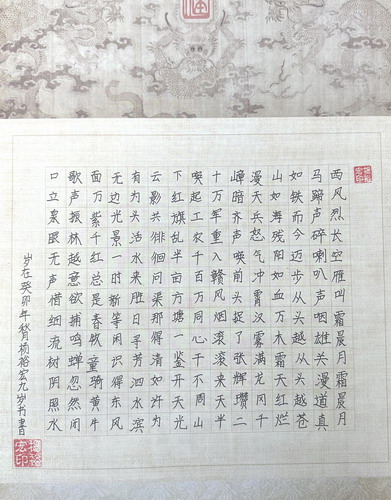 西风烈长空雁叫霜晨月霜晨月
马蹄声碎喇叭声咽雄关漫道真
如铁而今迈步从头越从头越苍
山如海残阳如血万木霜天红烂
漫天兵怒气冲霄汉雾满龙冈千
嶂暗齐声唤前头捉了张辉瓒二
十万军重入赣风烟滚滚来天半
唤起工农千百万同心干不周山
下红旗乱半亩方塘一鉴开天光
云影共徘徊问渠那得清如许为
有头活水来胜日寻芳泗水滨
无边光景一时新等闲识得东风
面万紫千红总是春牧童骑黄牛
歌声振林越意欲捕鸣蝉忽然闭
口立泉眼无声惜细流树阴照水
岁在癸卯年秋杨裕宏九岁书